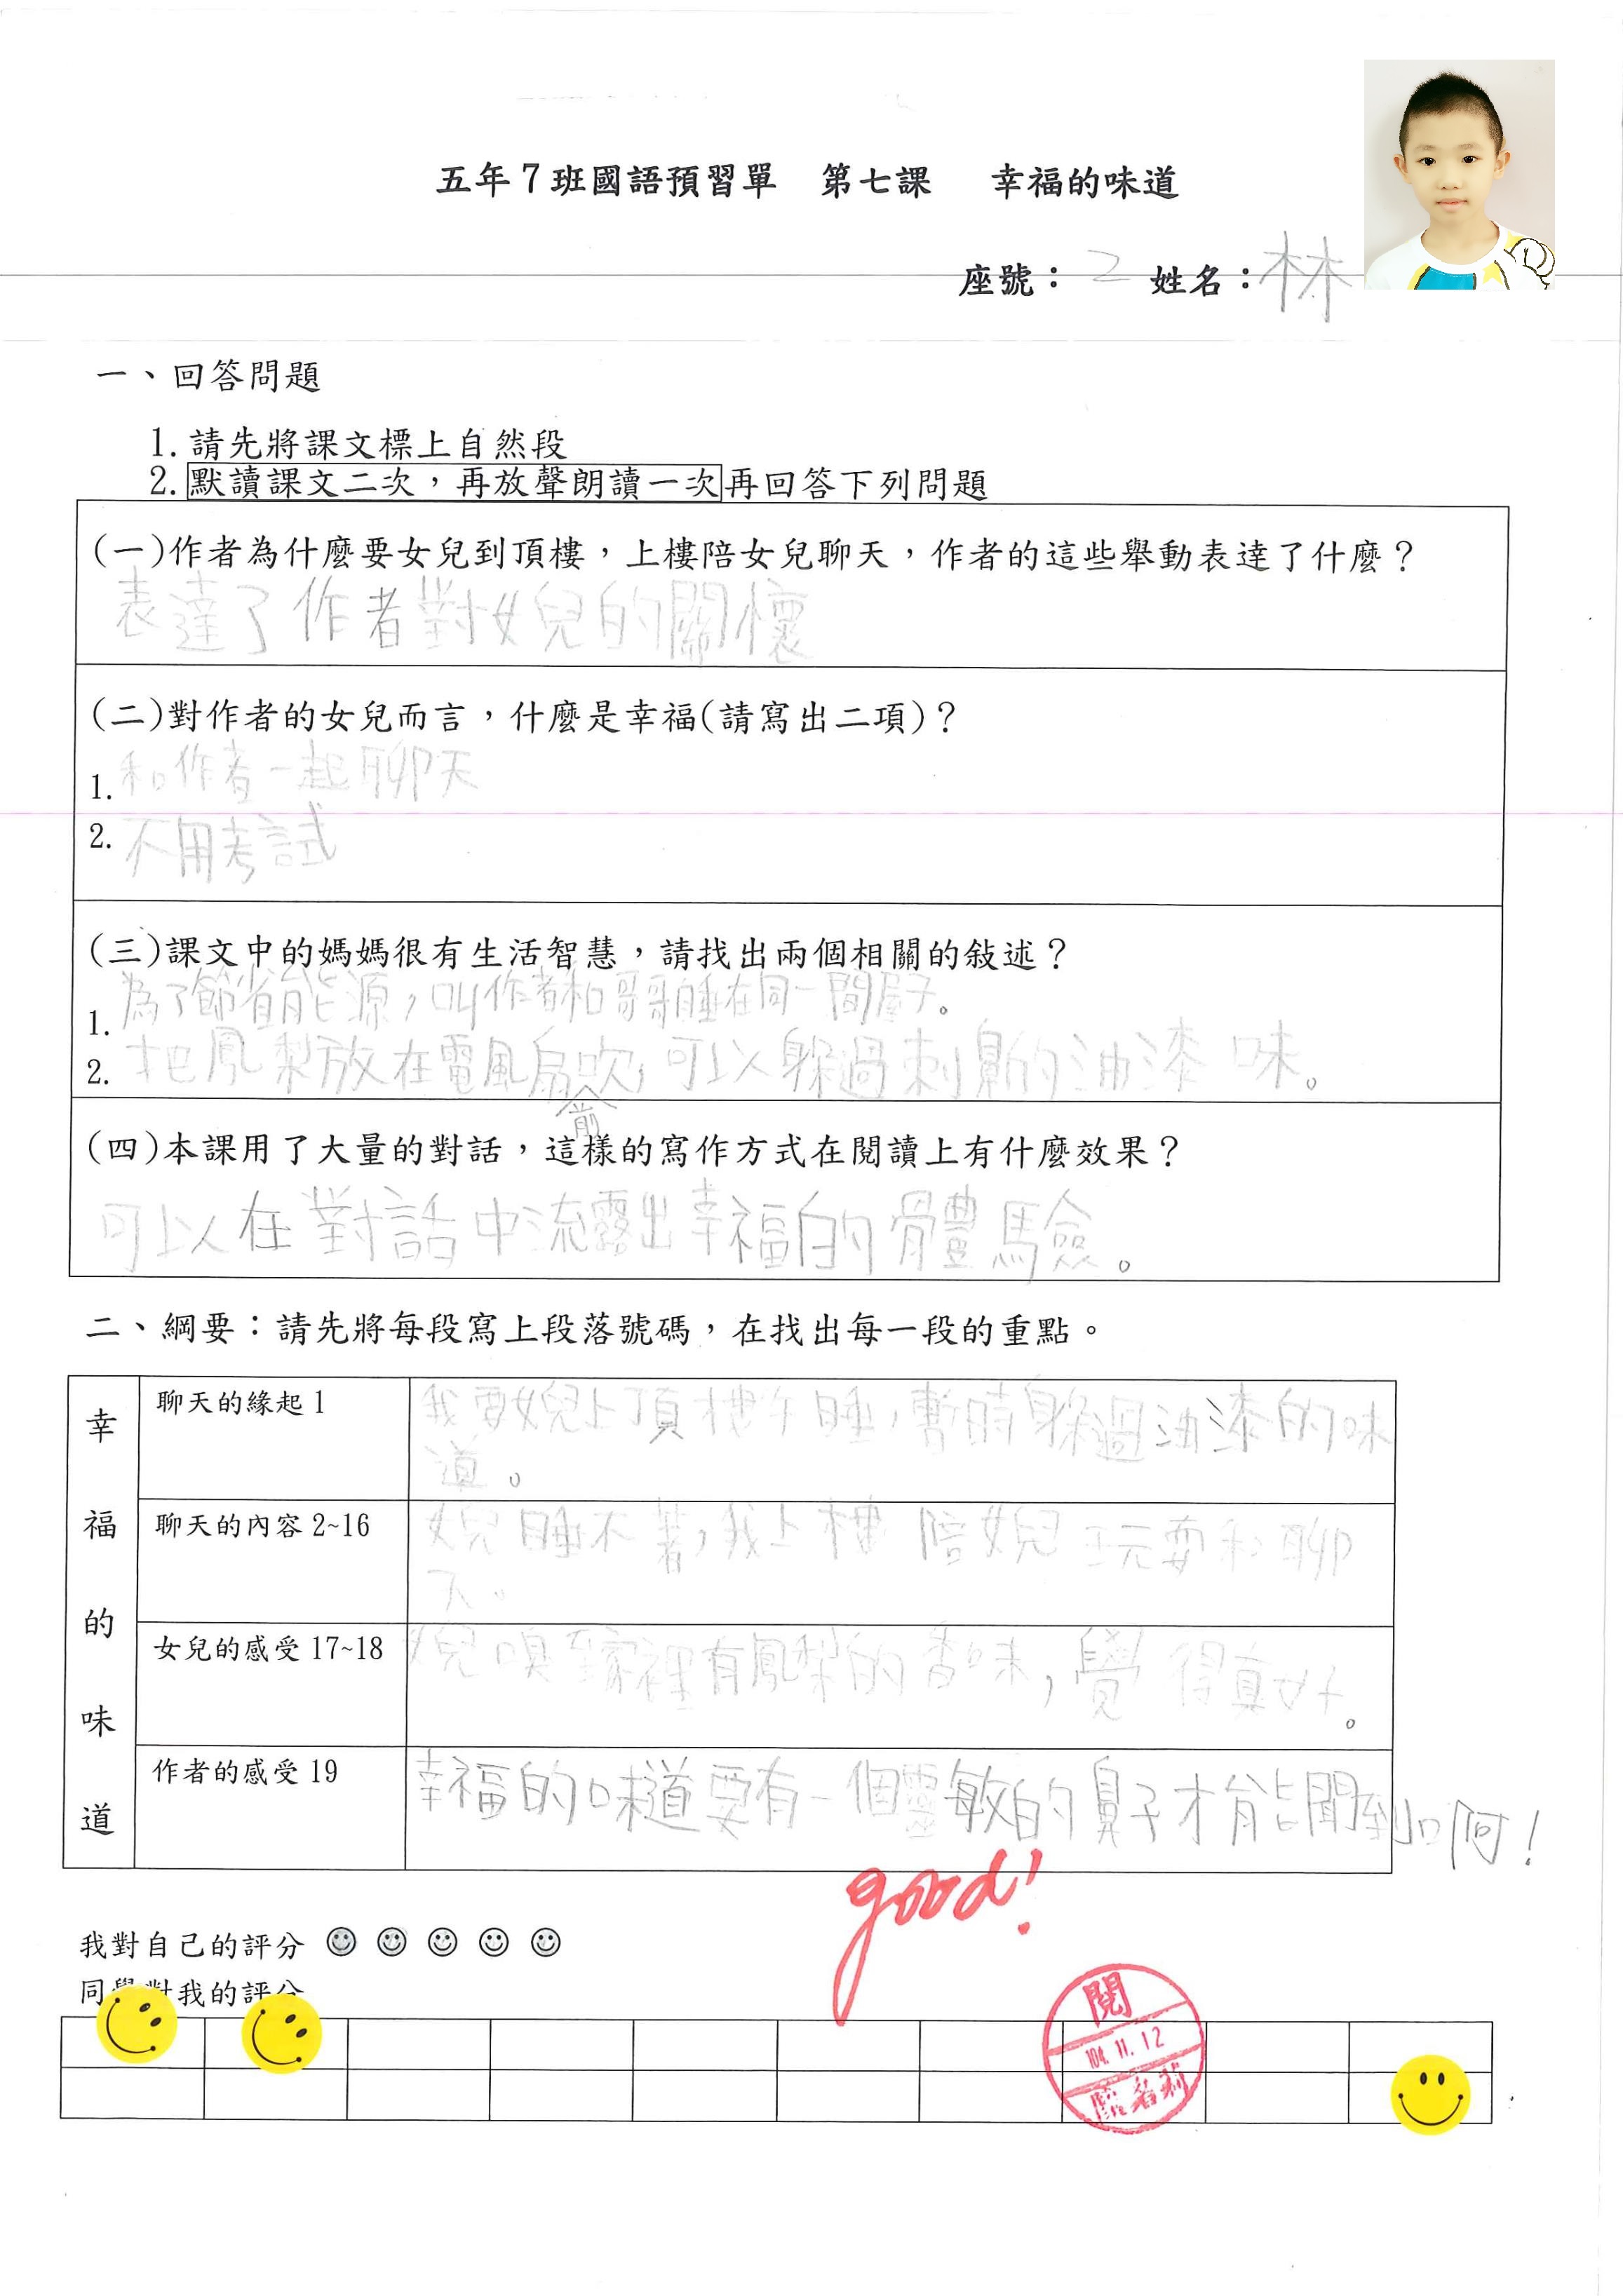 五年7班國語預習單　第七課　幸福的味道
座號：2 姓名：林
一、回答問題
1. 請先將課文標上自然段
2. 默讀課文二次，再放聲朗讀一次再回答下列問題
(一)作者為什麼要女兒到頂樓，上樓陪女兒聊天，作者的這些舉動表達了什麼？
表達了作者對女兒的關懷
(二)對作者的女兒而言，什麼是幸福(請寫出二項)？
1. 和作者一起聊天
2. 不用考試
(三)課文中的媽媽很有生活智慧，請找出兩個相關的敍述？
1. 為了節省能源，叫作者和哥哥睡在同一間屋子。
2. 把鳳梨放在電風扇前吹，可以躲過刺鼻的油漆味。
(四)本課用了大量的對話，這樣的寫作方式在閱讀上有什麼效果？
可以在對話中流露出幸福的體驗。
二、綱要：請先將每段寫上段落號碼，在找出每一段的重點。
幸福的味道
聊天的緣起 1
我要女兒上頂樓午睡，暫時躲過油漆的味
道。
聊天的內容 2~16
女兒睡不著，我上樓陪女兒玩耍和聊
天。
女兒的感受 17~18
女兒嗅到家裡有鳳梨的香味，覺得真好。
作者的感受 19
幸福的味道要有一個靈敏的鼻子才能聞到啊！
good!
我對自己的評分
同學對我的評分
閱
104.11.12